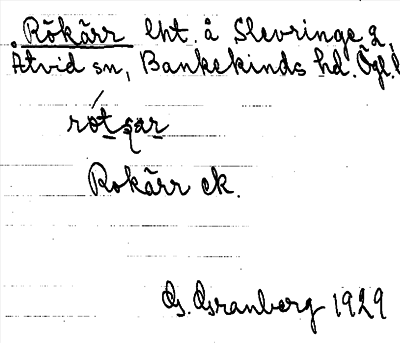 Rökärr lht. å Slevringe g,
Åtvid sn, Bankekinds hd. Ögl.
Rokärr ek.
G. Granberg 1929